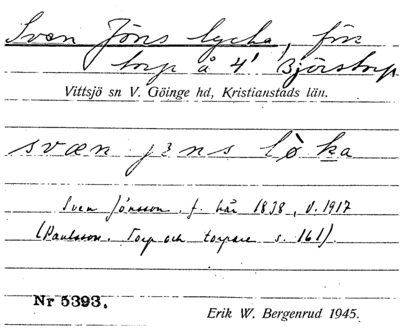 Sven Jöns lycka, förr
torp å 4¹ Björstorp
Vittsjö sn V. Göinge hd, Kristianstads län.
svæn jens lø̀ka
Sven Jönsson f. här 1838, d. 1917
(Paulsson. Torp och torpare s. 161).
Nr 5393.
Erik W. Bergenrud 1945.